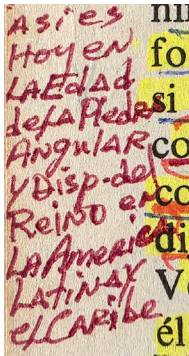 Así es
Hoy en
LA Edad
de LA Piedra
Angular
y Disp. del
Reino en
LA America
Latina y
el Caribe
ni
fo
si
co
co
di
V
él